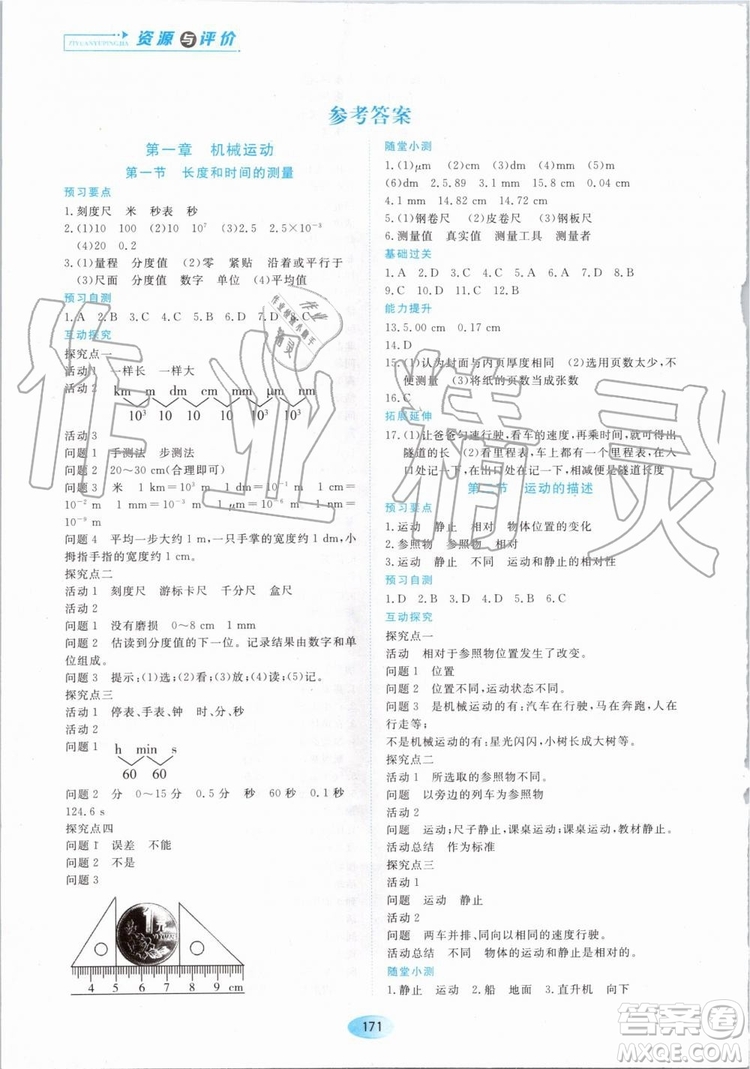 资源与评价
ZIYUANYUPINGJIA
参考答案
第一章 机械运动
第一节 长度和时间的测量
预习要点
1.刻度尺 米 秒表 秒
2.(1)10 100 (2)10 10⁷ (3)2.5 2.5×10⁻³
(4)20 0.2
3.(1)量程 分度值 (2)零 紧贴 (3)相平行于
(3)尺面 分度值 数字 单位 (4)平均值
预习自测
1.A 2.B 3.C
互动探究
探究点一
活动1 一样长 一样大
活动2 km m dm cm mm μm nm
10³ 10 10 10 10³ 10³
活动3
问题1 手测法 步测法
问题2 20～30 cm(合理即可)
问题3 米 1 km=10³ m 1 dm=10⁻¹ m 1 cm=
10⁻² m 1 mm=10⁻³ m 1 μm=10⁻⁶ m 1 nm=
10⁻⁹ m
问题4 平均一步大约1 m,一只手掌的宽度约1 dm,小
拇指手指的宽度大约是1 cm。
探究点二
活动1 刻度尺 游标卡尺 千分尺 盒尺
活动2
问题1 没有磨损 0～8 cm 1 mm
问题2 估读到分度值的下一位。记录结果由数字和单
位组成。
问题3 提示:(1)选;(2)看;(3)放;(4)读;(5)记。
探究点三
活动1 停表、手表、钟 时、分、秒
活动2
问题1 h min s
60 60
问题2 分 0～15 分 0.5 分 秒 60 秒 0.1 秒
124.6 s
探究点四
问题1 误差 不能
问题2 不是
问题3
4 5 6 7 8 9 cm
随堂小测
1.(1)μm (2)cm (3)m (4)cm (5)mm
(6)dm 2.5.89 3.2.5
4.1 mm 14.82 cm 14.72 cm
5.(1)钢卷尺 (2)皮卷尺 (3)钢板尺
6.测量值 真实值 测量工具 测量者
基础过关
1.A 2.D 3.C 4.D 5.D 6.D 7.B 8.B
9.C 10.D 11.D 12.D
能力提升
13.5.00 cm 0.17 cm
14.D
15.(1)认为封面与内页厚度相同 (2)选用页数太少,不
便测量 (3)将纸的页数当成张数
16.C
拓展延伸
17.(1)让爸爸匀速行驶,看车的速度,再乘时间,就可得出
隧道长 (2)看里程表,车上有里程表,在入
口处记一下,出口处记一下,相减就是隧道长度
第二节 运动的描述
预习要点
1.运动 静止 相对 物体位置的变化
2.参照物 参照物 相对
3.运动 静止 不同 运动和静止的相对性
预习自测
1.D 2.B 3.D 4.D 5.B 6.C
互动探究
探究点一
活动 相对于参照物位置发生了改变。
问题1 位置
问题2 位置不同,运动状态不同。
问题3 是机械运动的有:汽车在行驶,马在奔跑,人在
行走等;
不是机械运动的有:星光闪闪,小草发芽等。
探究点二
活动1 所选取的参照物不同。
问题 以旁边的列车为参照物
活动2
问题 运动;尺子静止,课桌运动;课桌运动,教材静止。
活动总结 作为标准
探究点三
活动1
问题 运动 静止
活动2
问题 两车并排、同向以相同的速度行驶。
活动总结 不同 物体的运动和静止是相对的
随堂小测
1.静止 运动 2.船 地面 3.直升机 向下
171
作业精灵
作业
作业检查小助手
精灵
答案圈
MXQE.COM